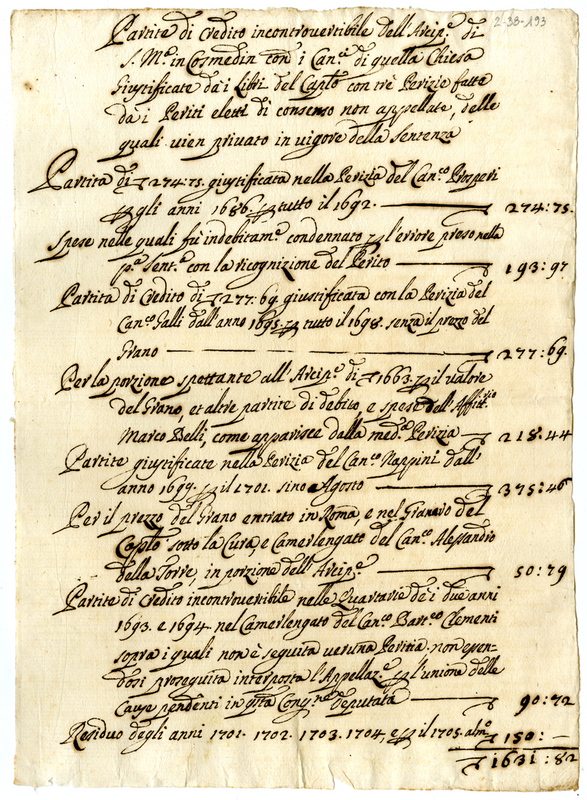 2-38-193
Partite di Credito incontrovertibile dell'Arcip.e di
S. M.a in Cosmedin con i Can.ci di quella Chiesa
Giustificate da i Libri del Caplo con trè Perizie fatte
da i Periti eletti di consenso non appellate, delle
quali vien privato in vigore della Sentenza
Partita di 274:75. giustificata nella Perizia del Can.co Prosperi
gli anni 1686. tutto il 1692. — 274:75.
Spese nelle quali fù indebitam.e condennato l'errore preso nella
p.a Sent.a con la ricognizione del Perito — 193:97
Partita di Credito di 277.69. giustificata con la Perizia del
Can.co Galli dall'anno 1695. tutto il 1698. senza il prezzo del
Grano — 277:69.
Per la porzione spettante all'Arcip.e di 1663. il valore
del Grano, et altre partite di debito, e spese dell'Affitt.rio
Marco Belli, come apparisce dalla med.a Perizia — 218.44
Partite giustificate nella Perizia del Can.co Nappini dall'
anno 1699. il 1701. sino Agosto — 375:46
Per il prezzo del Grano entrato in Roma, e nel Granaro del
Caplo sotto la Cura, e Camerlengato del Can.co Alessandro
della Torre, in porzione dell'Arcip.e — 50:79
Partite di Credito incontrovertibile nelle Quartarie de i due anni
1693. e 1694. nel Camerlengato del Can.co Bart.eo Clementi
sopra i quali non è seguita veruna Peritia, non essen-
dosi proseguita interposta l'Appellaz.e l'unione delle
Cause pendenti in q.sta Cong.ne deputata — 90:72
Residuo degli anni 1701. 1702. 1703. 1704. e il 1705. alm.o 150: —
1631:82